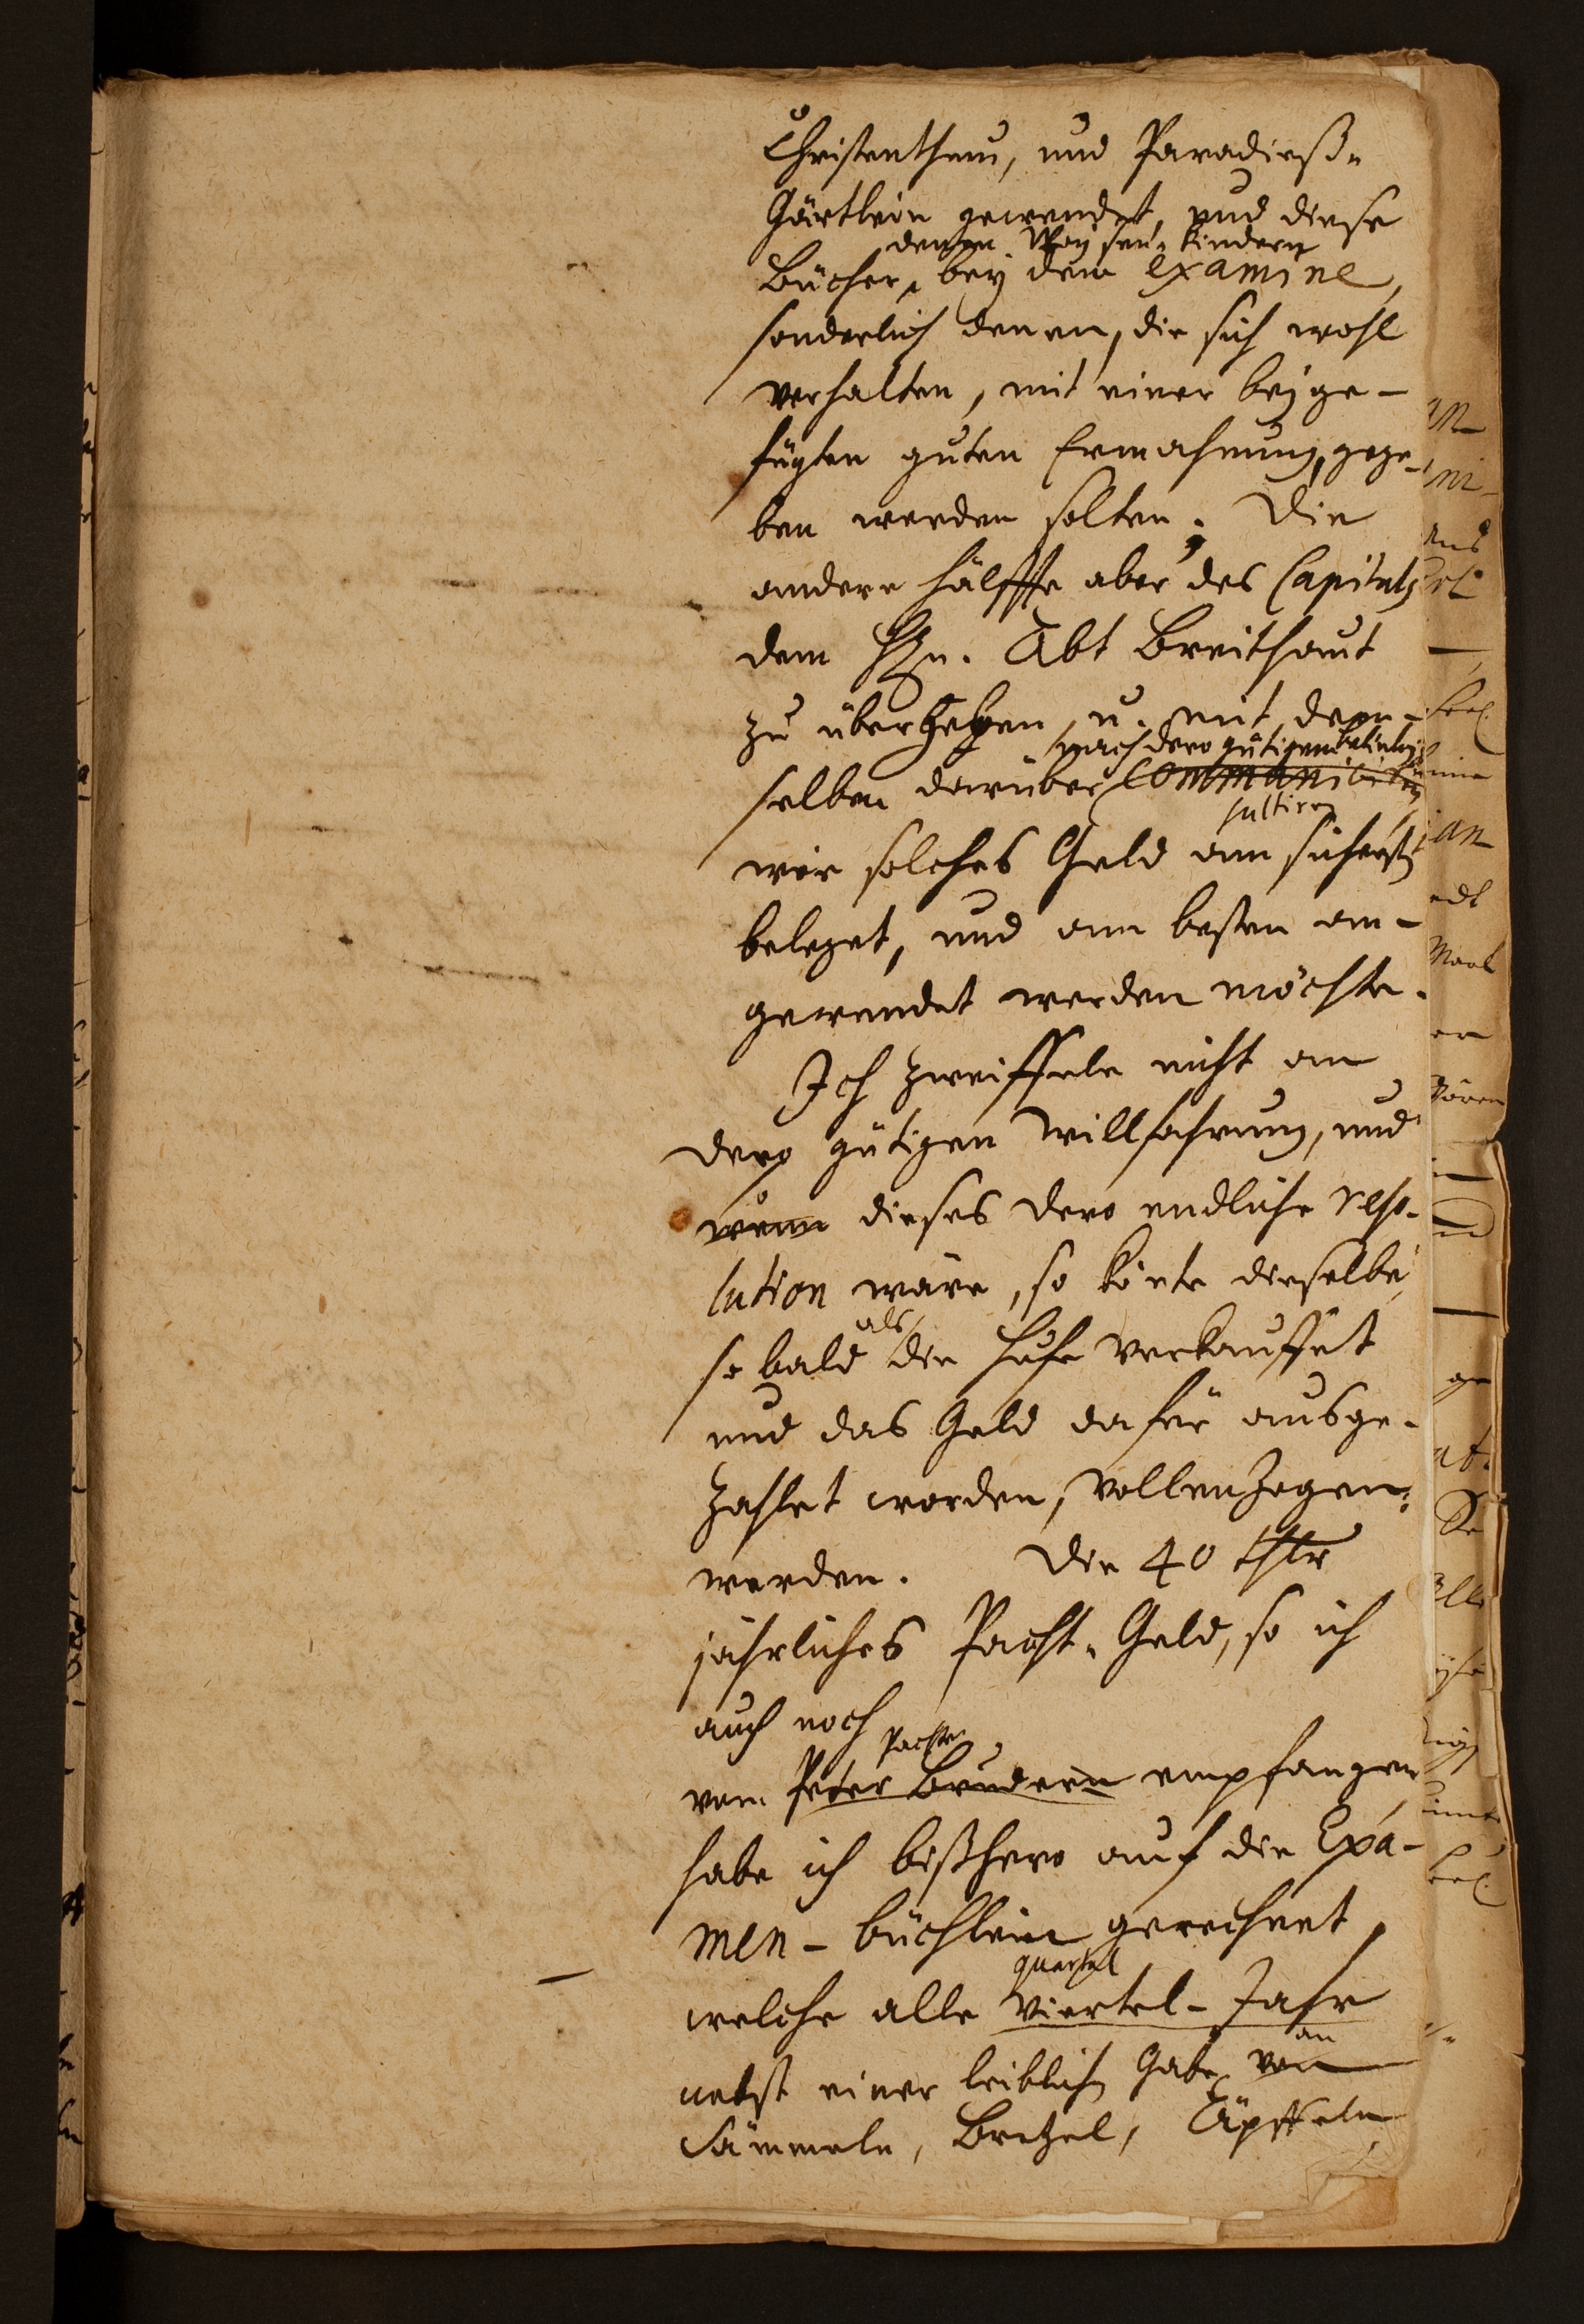 Christenthum, und Paradieß-
Gärtlein gewendet, und diese
denen Waysen-Kindern
Bücher, bey dem examine,
sonderlich denen, die sich wohl
verhalten, mit einer beyge-
fügten guten Ermahnung, gege-
ben werden solten. Die
andere Hälffte aber des Capitals
dem HEn. Abt Breithaut
zu übergeben, u. mit dem-
nach dero gütigem
selben darüber Communiciren
sultiren
wie solches Geld am sichersten
beleget, und am besten an-
gewendet werden möchte.
Ich zweiffele nicht an
dero gütigen Willfahrung, und
wenn dieses dero endliche reso-
lution wäre, so könte dieselbe,
als
so bald die Hufe verkauffet
und das Geld dafür ausge-
zahlet worden, vollenzogen
werden. Die 40 thlr
jährliches Pacht-Geld, so ich
auch noch
Pachter
vom Peter Brudern empfangen
habe ich bißhero auf die Exa-
men-büchlein gerechnet,
quartal
welche alle Viertel-Jahr
an
nebst einer leiblichen Gabe von
Sämmeln, Bretzel, Äpffeln